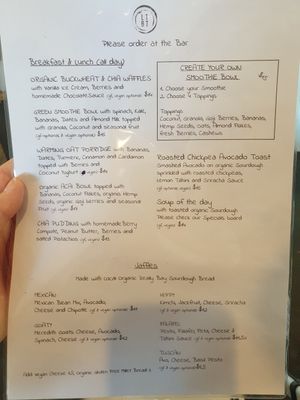 LI
BT
Please order at the Bar
Breakfast & Lunch (all day)
ORGANIC BUCKWHEAT & CHIA WAFFLES
with Vanilla Ice Cream, Berries and
homemade Chocolate Sauce (gf, vegan optional)
GREEN SMOOTHIE BOWL with Spinach, Kale,
Bananas, Dates and Almond Milk topped
with Granola, Coconut and seasonal fruit
(gf optional & vegan)
WARMING OAT PORRIDGE with Bananas,
Dates, Turmeric, Cinnamon and Cardamon
topped with Berries and
Coconut Yoghurt vegan
ORGANIC ACAI BOWL topped with
Bananas, Coconut Flakes, organic Hemp
Seeds, organic Goji berries and seasonal
Fruit (gf, vegan)
CHIA PUDDING with homemade Berry
Compote, Peanut Butter, Berries and
salted Pistachios (gf, vegan)
CREATE YOUR OWN
SMOOTHIE BOWL
1. Choose your Smoothie
2. Choose 4 Toppings
Toppings:
Coconut, Granola, Goji Berries, Bananas,
Hemp Seeds, Oats, Almond Flakes,
fresh Berries, Cashews
Roasted Chickpea Avocado Toast
Smashed Avocado on organic Sourdough
sprinkled with roasted chickpeas,
Lemon Tahini and Sriracha Sauce
(gf optional & vegan)
Soup of the day
with toasted organic Sourdough
Please check our Specials board
(gf, vegan)
Jaffles
Made with local Organic Sourdough Bread
MEXICAN
Mexican Bean Mix, Avocado,
Cheese and Chipotle (gf & vegan optional)
GOATY
Meredith Goats Cheese, Avocado,
Spinach, Cheese (gf & vegan optional)
HIPPY
Kimchi, Jackfruit, Cheese, Sriracha
(gf & vegan optional)
FALAFEL
Pesto, Falafel, Feta, Cheese &
Tahini Sauce (gf & vegan optional)
TUSCAN
Cheese, Basil Pesto
(gf & vegan optional)
Add vegan Cheese